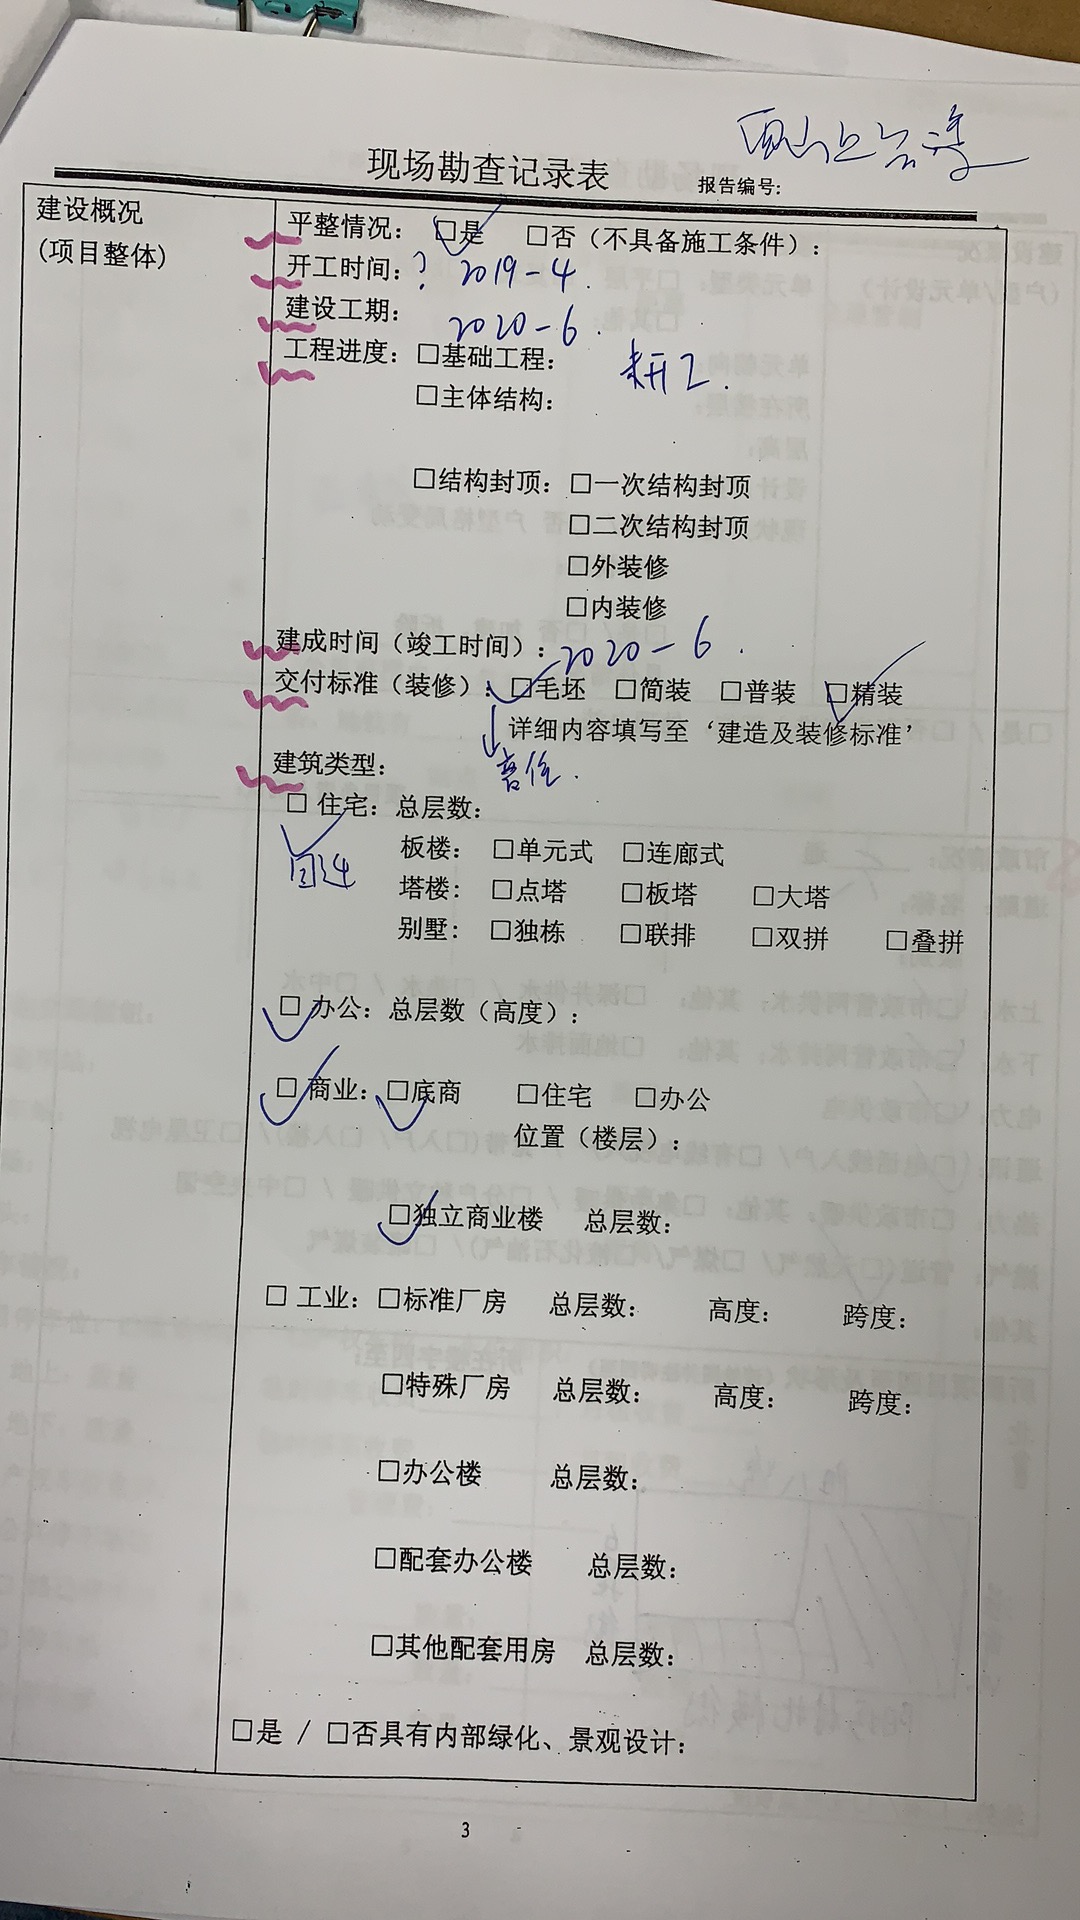 现场勘查记录表
报告编号:
建设概况
(项目整体)
平整情况: □是 □否(不具备施工条件):
开工时间:? 2019-4.
建设工期: 2020-6.
工程进度: □基础工程: 未开工.
□主体结构:
□结构封顶: □一次结构封顶
□二次结构封顶
□外装修
□内装修
建成时间(竣工时间): 2020-6.
交付标准(装修): □毛坯 □简装 □普装 □精装
↓ 详细内容填写至‘建造及装修标准’
建筑类型:
□ 住宅: 总层数:
回迁
板楼: □单元式 □连廊式
塔楼: □点塔 □板塔 □大塔
别墅: □独栋 □联排 □双拼 □叠拼
□ 办公: 总层数(高度):
□ 商业: □底商 □住宅 □办公
位置(楼层):
□独立商业楼 总层数:
□ 工业: □标准厂房 总层数: 高度: 跨度:
□特殊厂房 总层数: 高度: 跨度:
□办公楼 总层数:
□配套办公楼 总层数:
□其他配套用房 总层数:
□是 / □否具有内部绿化、景观设计:
3